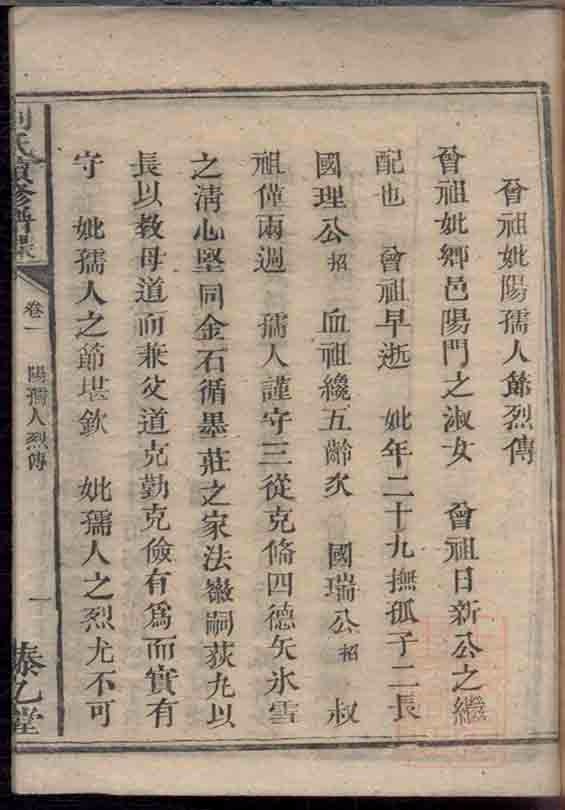 曾祖妣陽孺人節烈傳
曾祖妣鄉邑陽門之淑女 曾祖日新公之繼
配也 曾祖早逝 妣年二十九撫孤子二長
國理公招 血祖纔五齡次 國瑞公招 叔
祖僅兩週 孺人謹守三從克脩四德矢氷雪
之清心堅同金石循墨莊之家法嗣荻丸以
長以教母道而兼父道克勤克儉有爲而實有
守 妣孺人之節堪欽 妣孺人之烈尤不可
劉氏續修譜
卷一 陽孺人烈傳 一 泰乙堂